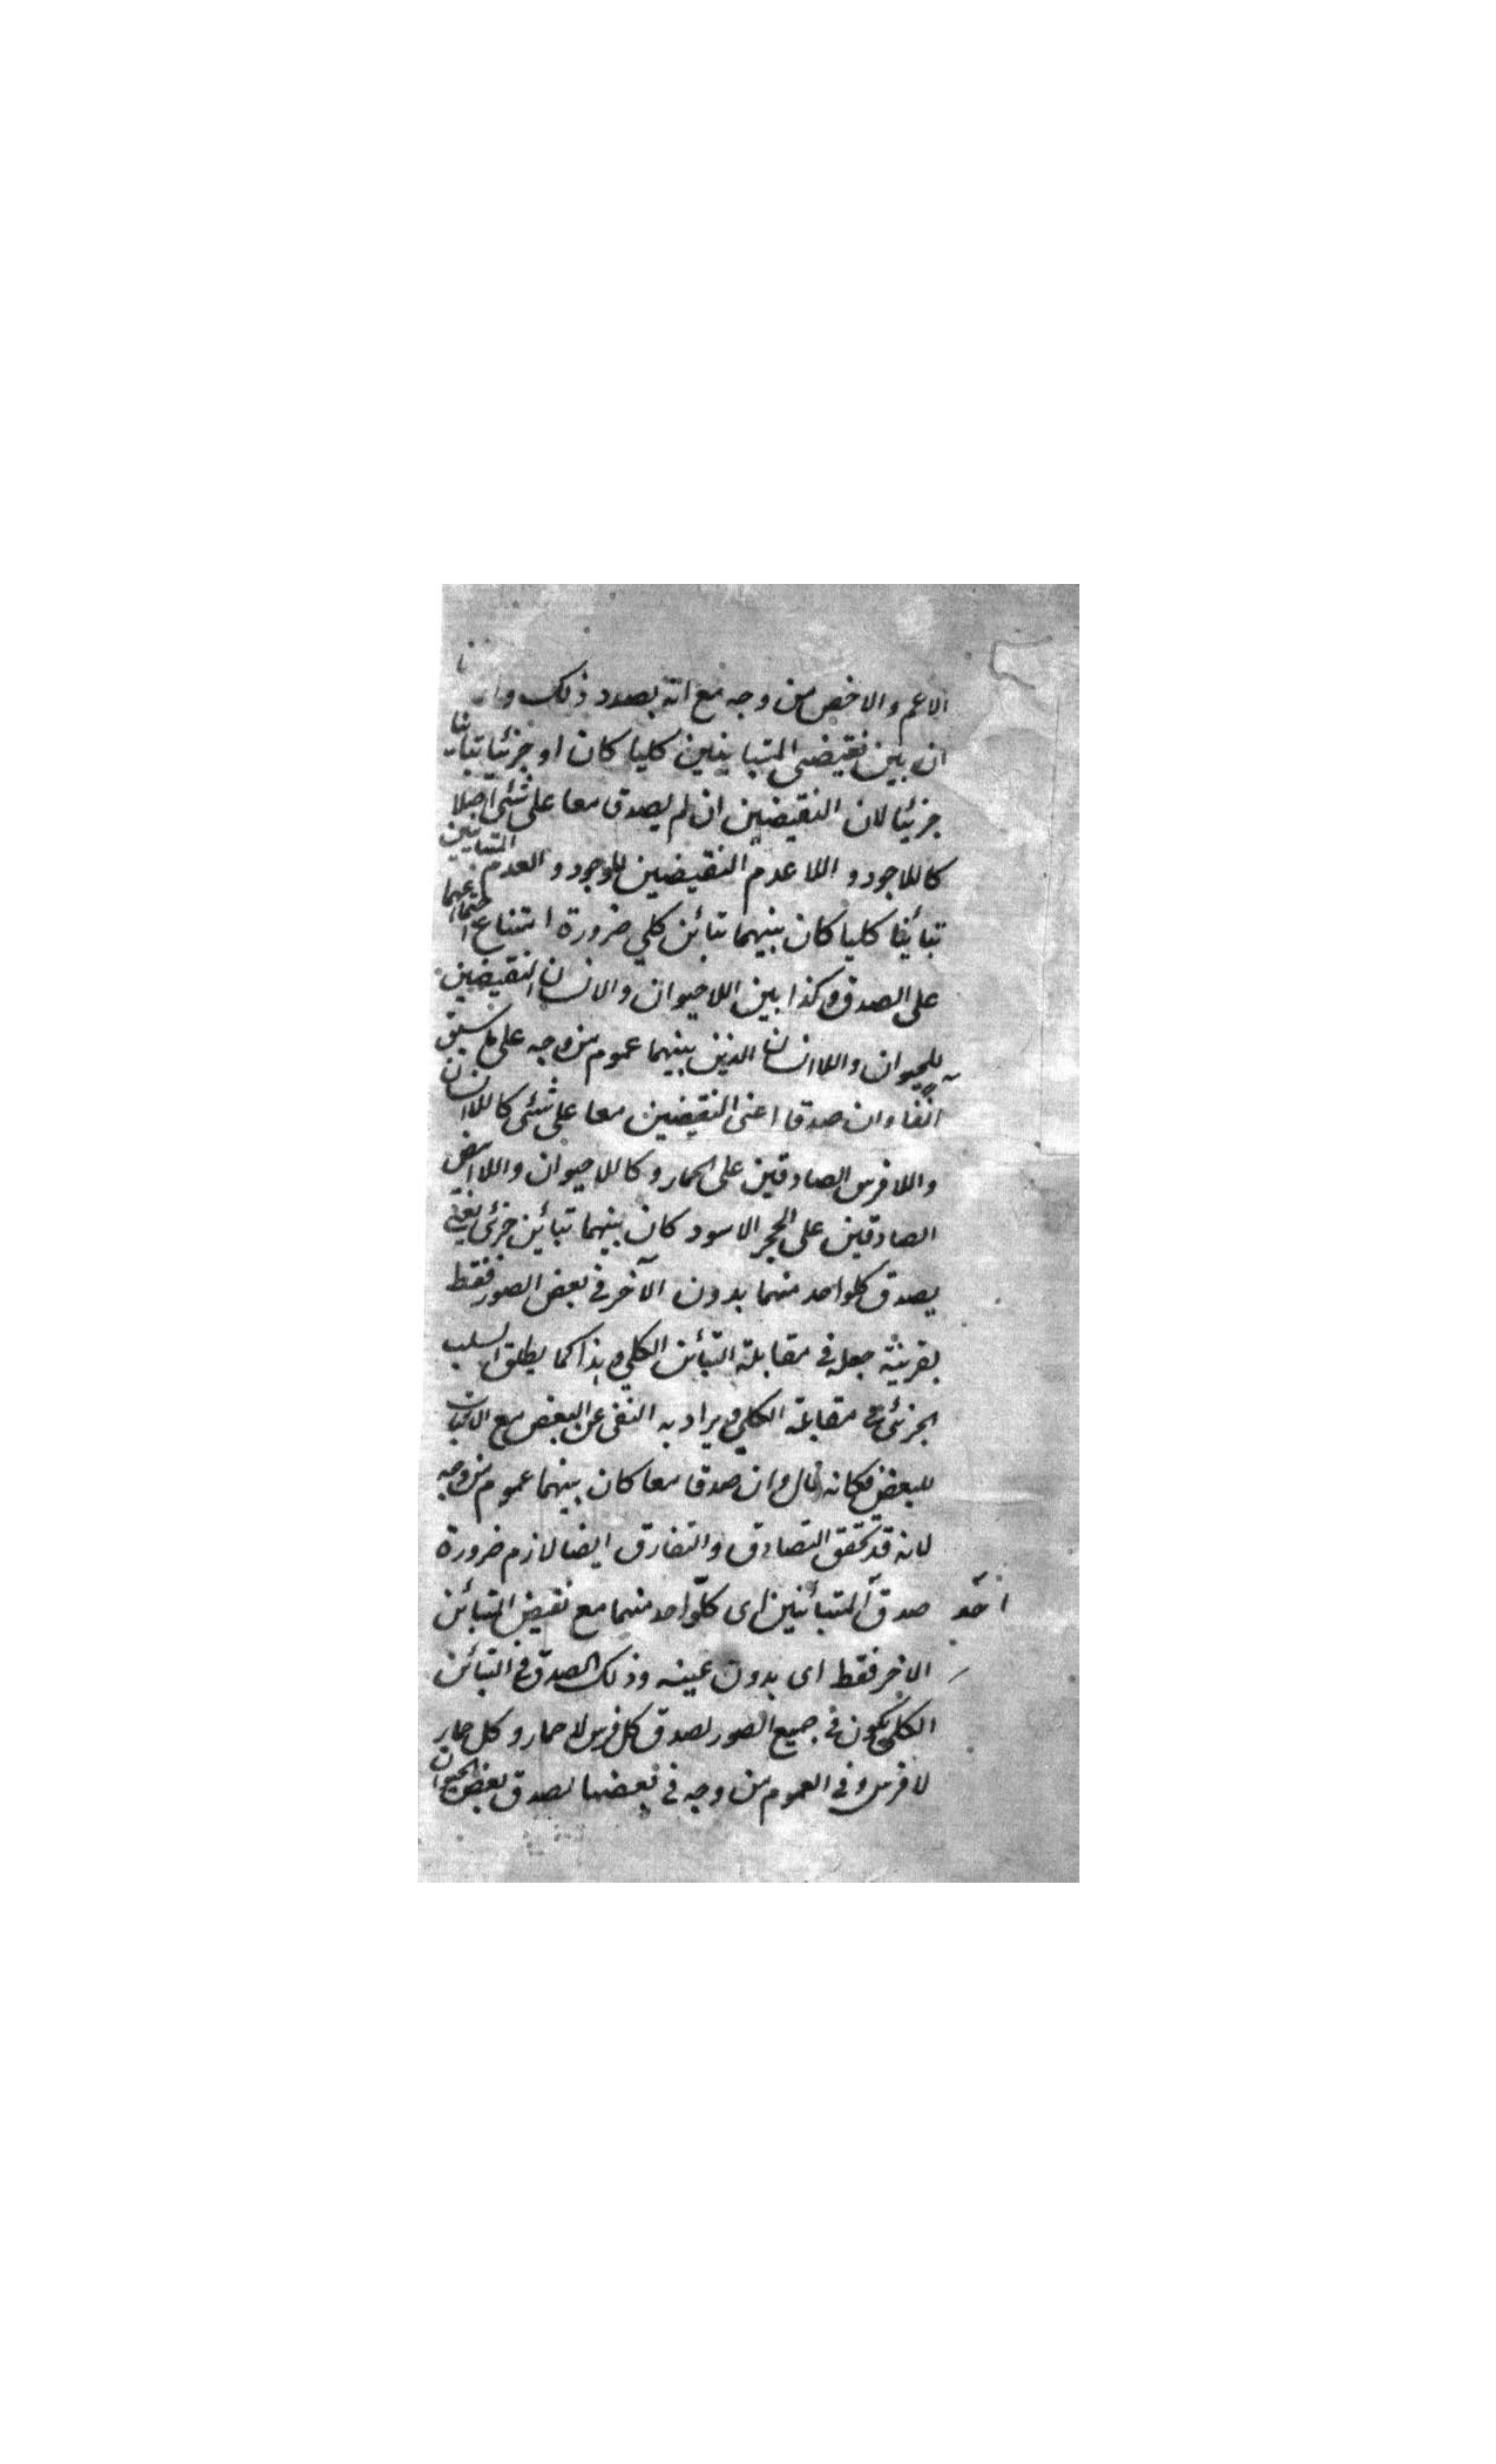 الاعم والاخص من وجه مع انه بصدد ذلك
ان بين نقيضى المتباينين كليا كان او جزئيا تباينا
جزئيا لان النقيضين ان لم يصدقا معا على شئ اصلا
كاللاوجود واللاعدم النقيضين للوجود والعدم المتباينين
تبائنا كليا كان بينهما تبائن كلي ضرورة امتناع اجتماعهما
على الصدق وكذا بين اللاحيوان والانسان النقيضين
للحيوان واللاانسان الذين بينهما عموم من وجه على ما سبق
آنفا وان صدقا اعنى النقيضين معا على شئ كاللاانسان
واللافرس الصادقين على الحمار وكاللاحيوان واللاابيض
الصادقين على الحجر الاسود كان بينهما تبائن جزئى يعنى
يصدق كلواحد منهما بدون الآخر فى بعض الصور فقط
بقرينة جعله فى مقابلة التبائن الكلي وهذا كما يطلق السلب
الجزئى فى مقابلة الكلي ويراد به النفى عن البعض مع الاثبات
للبعض فكانه قال وان صدقا معا كان بينهما عموم من وجه
لانه قد تحقق التصادق والتفارق ايضا لازم ضرورة
صدق المتبائنين اى كلواحد منهما مع نقيض المتبائن
الاخر فقط اى بدون عينه وذلك الصدق فى التبائن
الكلي يكون فى جميع الصور لصدق كل فرس لا حمار وكل حمار
لا فرس وفى العموم من وجه فى بعضها لصدق بعض الحيوان